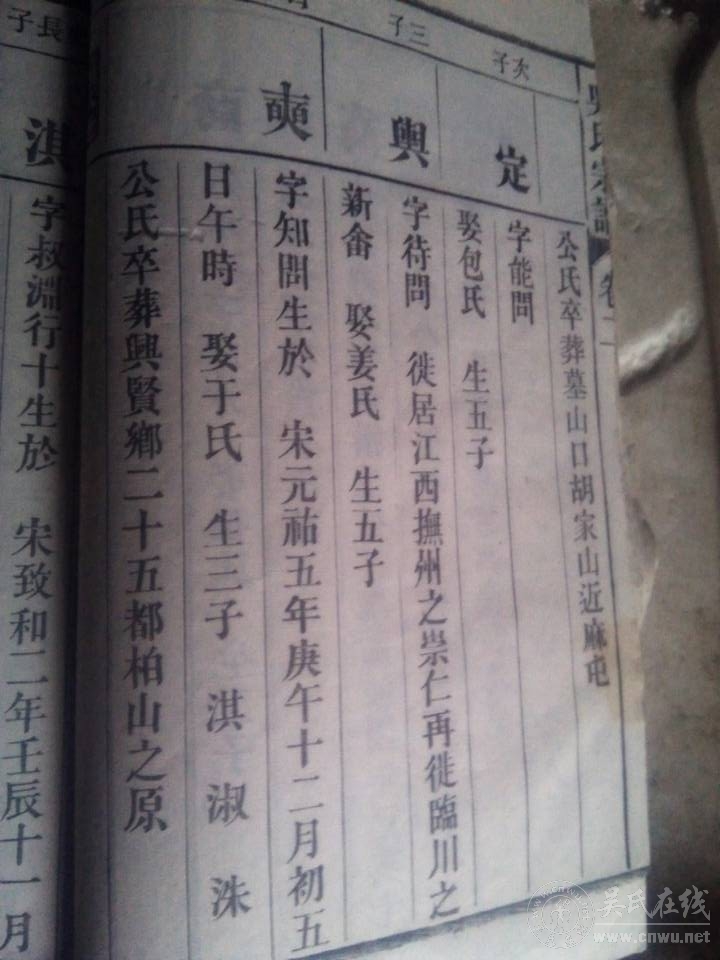 吳氏宗譜 卷二
公氏卒葬墓山口胡家山近麻屯
次子
定
字能問
娶包氏 生五子
三子
興
字待問 徙居江西撫州之崇仁再徙臨川之
新畬 娶姜氏 生五子
奭
字知問生於 宋元祐五年庚午十二月初五
日午時 娶于氏 生三子 淇 淑 洙
公氏卒葬興賢鄉二十五都柏山之原
長子
淇
字叔淵行十生於 宋致和二年壬辰十一月
吴氏在线
www.cnwu.net